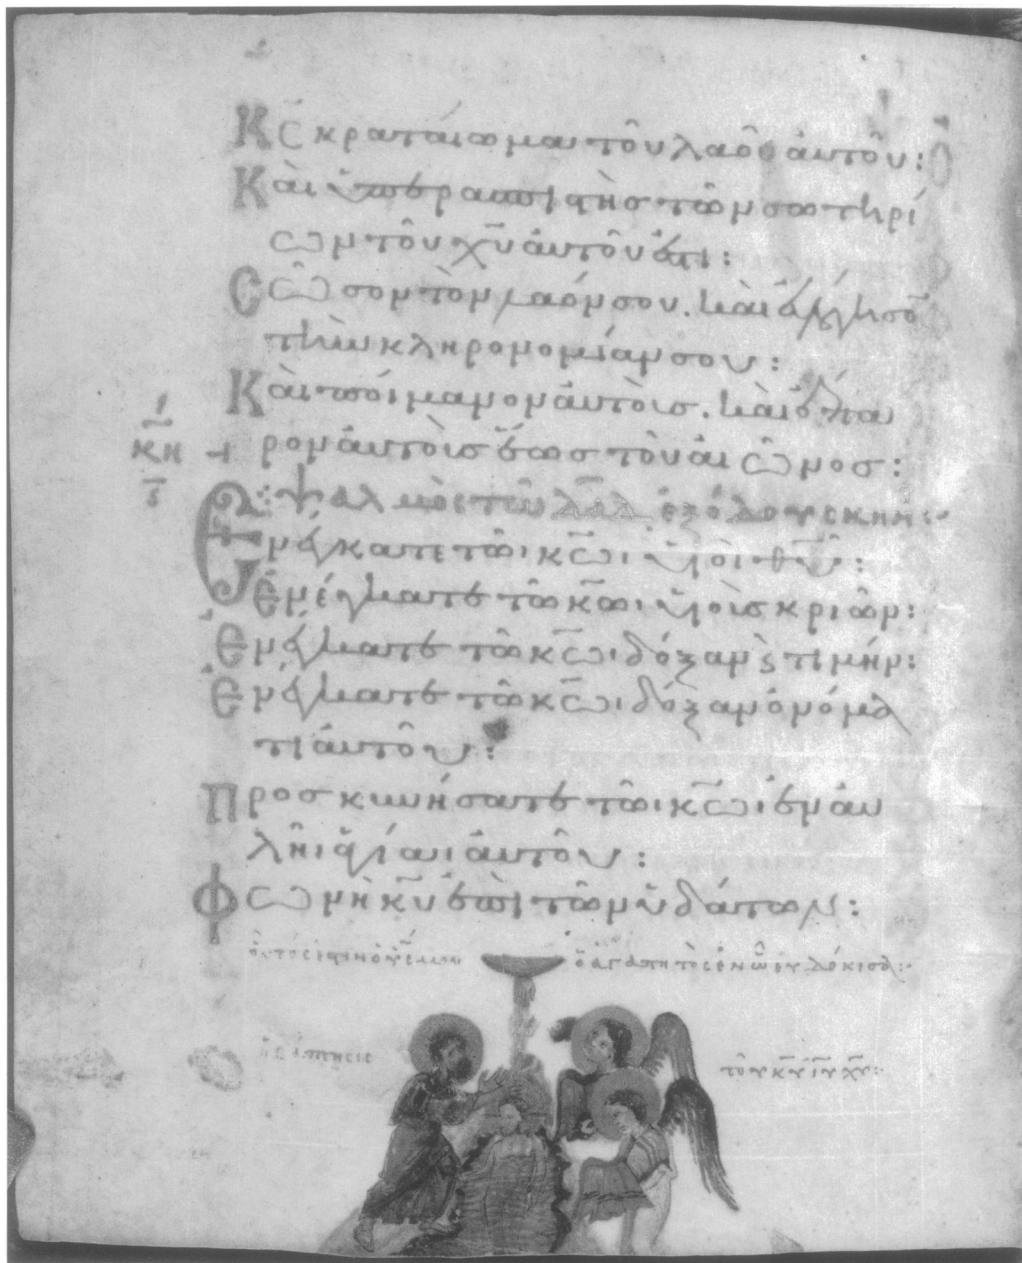 Κ̅Σ̅ κραταίωμα τοῦ λαοῦ ἀυτοῦ :
Κὰι ὑπερασπιστὴσ τῶν σωτηρί
ων τοῦ χ̅υ̅ ἀυτοῦ ἐστι :
Σῶσον τὸν λαόν σου . κὰι ἐυλόγησο̅
τὴν κληρονομίαν σου :
Κὰι ποίμανον ἀυτὸισ . κὰι ἔπα
κ̅η̅ ρον ἀυτὸισ ἕωσ τοῦ ἀιῶνοσ :
ψαλμὸς τῶ δ̅α̅δ̅ ἐξόδου σκηνῆς
Ἐνέγκατε τῶι κ̅ω̅ι υἱοὶ θ̅υ̅ :
Ἐνέγκατε τῶ κ̅ω̅ι υἱοὶσ κριῶν :
Ἐνέγκατε τῶ κ̅ω̅ι δόξαν ϗ τιμήν :
Ἐνέγκατε τῶ κ̅ω̅ι δόξαν ὀνόμα
τι ἀυτοῦ :
Προσκυνήσατε τῶι κ̅ω̅ι ἐν ἀυ
λῆι ἁγίαι ἀυτοῦ :
Φωνὴ κ̅υ̅ ἐπὶ τῶν ὑδάτων :
ὁυτος ἐςτιν ὁ υ̅ς̅ μου ὁ ἀγαπητὸς ἐν ὧ ἐυδόκισα :
ἡ βάπτησις τοῦ κ̅υ̅ ι̅υ̅ χ̅υ̅ :